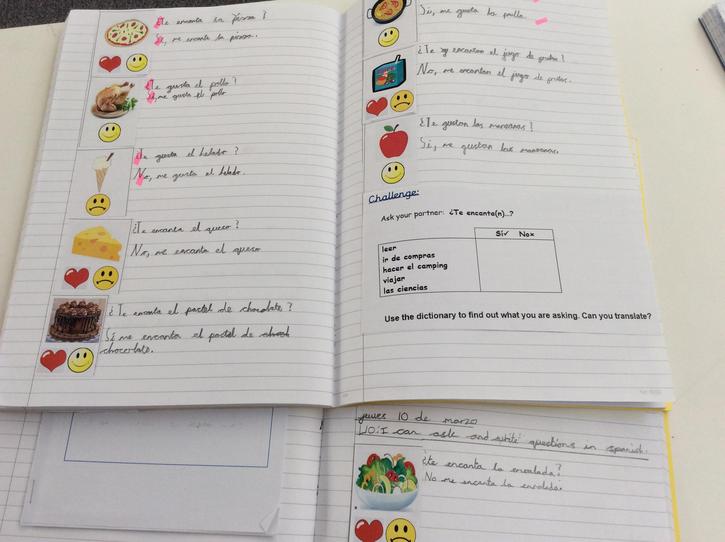 ¿Te encanta la pizza?
Si, me encanta la pizza.
¿Te gusta el pollo?
Si, me gusta el pollo
¿Te gusta el helado?
No, me gusta el helado.
¿Te encanta el queso?
No, me encanta el queso
¿Te encanta el pastel de chocolate?
Si me encanta el pastel de
chocolate.
Si, me gusta la
¿Te encantan el jugo de frutas?
No, me encantan el jugo de frutas.
¿Te gustan las manzanas?
Si, me gustan las manzanas.
Challenge:
Ask your partner: ¿Te encanta(n)...?
Si✓ No×
leer
ir de compras
hacer el camping
viajar
las ciencias
Use the dictionary to find out what you are asking. Can you translate?
jueves 10 de marzo
LO: I can ask and write questions in spanish.
¿te encanta la ensalada?
No me encanta la ensalada.